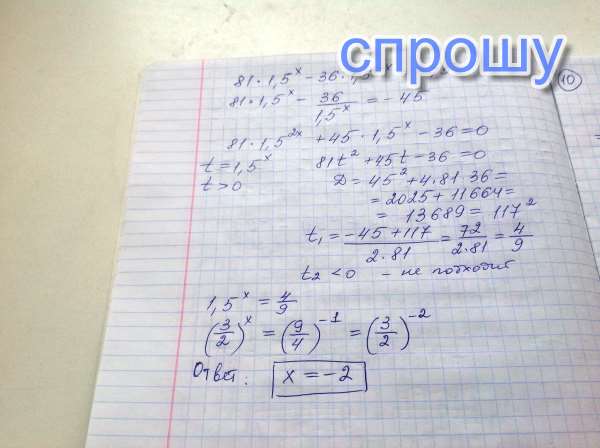 спрошу
10
81·1,5^x − 36·1,5
81·1,5^x − 36/1,5^x = −45
81·1,5^2x + 45·1,5^x − 36 = 0
t = 1,5^x   81t² + 45t − 36 = 0
t > 0   D = 45² + 4·81·36 =
= 2025 + 11664 =
= 13689 = 117²
t₁ = (−45 + 117)/(2·81) = 72/(2·81) = 4/9
t₂ < 0 – не подходит
1,5^x = 4/9
(3/2)^x = (9/4)^−1 = (3/2)^−2
Ответ: x = −2